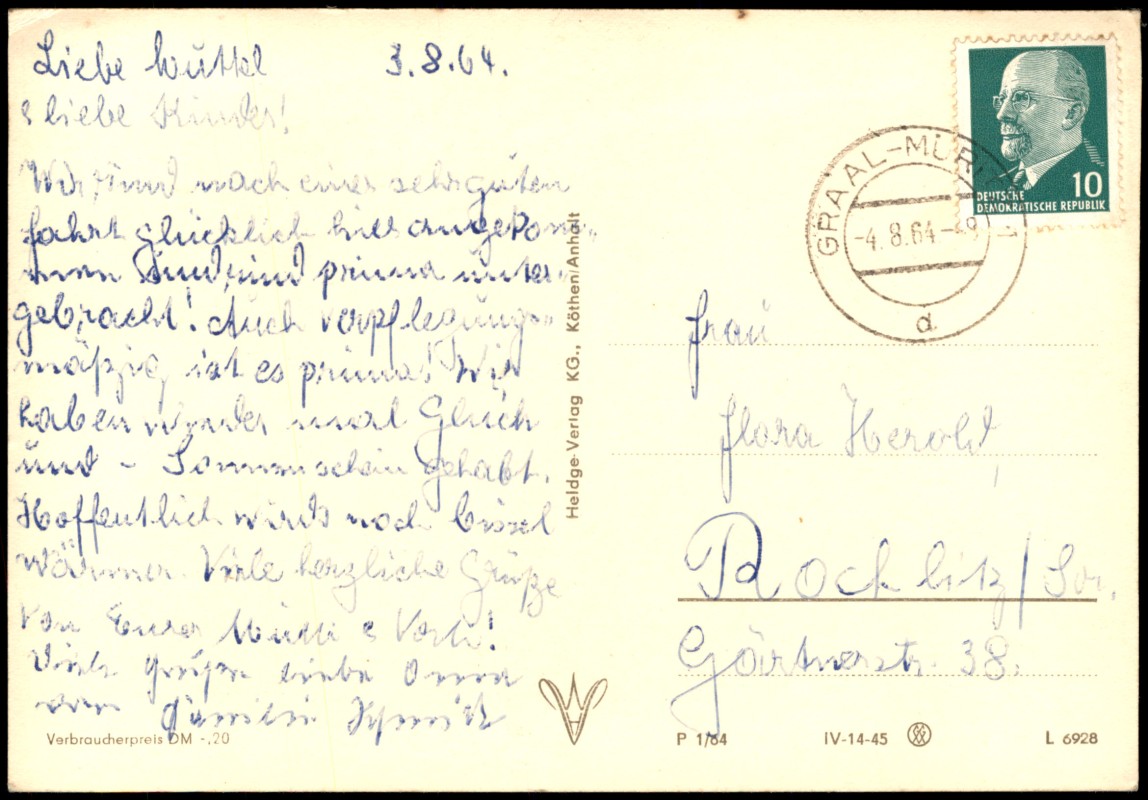 Liebe Muttel 3.8.64.
& liebe Kinder!
Wir sind nach einer sehr guten
Fahrt glücklich hier angekom-
men und sind prima unter-
gebracht! Auch verpflegungs-
mäßig ist es prima! Wir
haben wieder mal Glück
und - Sonnenschein gehabt.
Hoffentlich wirds noch bissel
wärmer. Viele herzliche Grüße
von Eurer Mutti & Vati!
Viele Grüße liebe Oma
von Familie
Verbraucherpreis DM -,20
Heldge-Verlag KG., Köthen/Anhalt
10
DEUTSCHE
DEMOKRATISCHE REPUBLIK
GRAAL-MÜR
-4.8.64-
d
Frau
Flora Herold,
Rochlitz/Sa.
Gärtnerstr. 38.
P 1/64 IV-14-45 L 6928